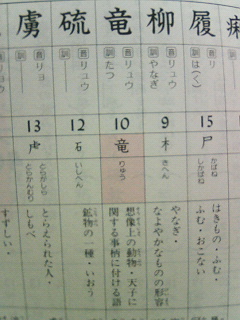 履
音 リ
訓 は(く)
15
尸
かばね
しかばね
はきもの・ふむ・
ふむ・おこない
柳
音 リュウ
訓 やなぎ
9
木
きへん
やなぎ・
なよやかなものの形容
竜
音 リュウ
訓 たつ
10
竜
りゅう
想像上の動物・天子に
関する事柄に付ける語
硫
音 リュウ
訓
12
石
いしへん
鉱物の一種・いおう
虜
音 リョ
訓
13
虍
とらがしら
とらかんむり
とらえられた人・
しもべ
すずしい・